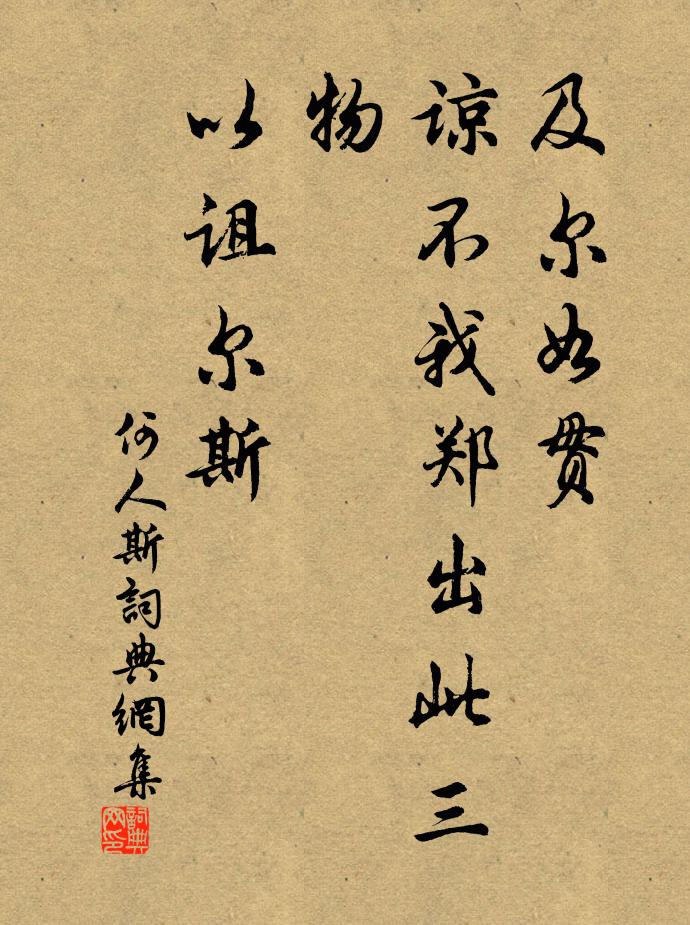 及尔如贯
谅不我郑出此三
物
以诅尔斯
何人斯詞典網集
詞典网印